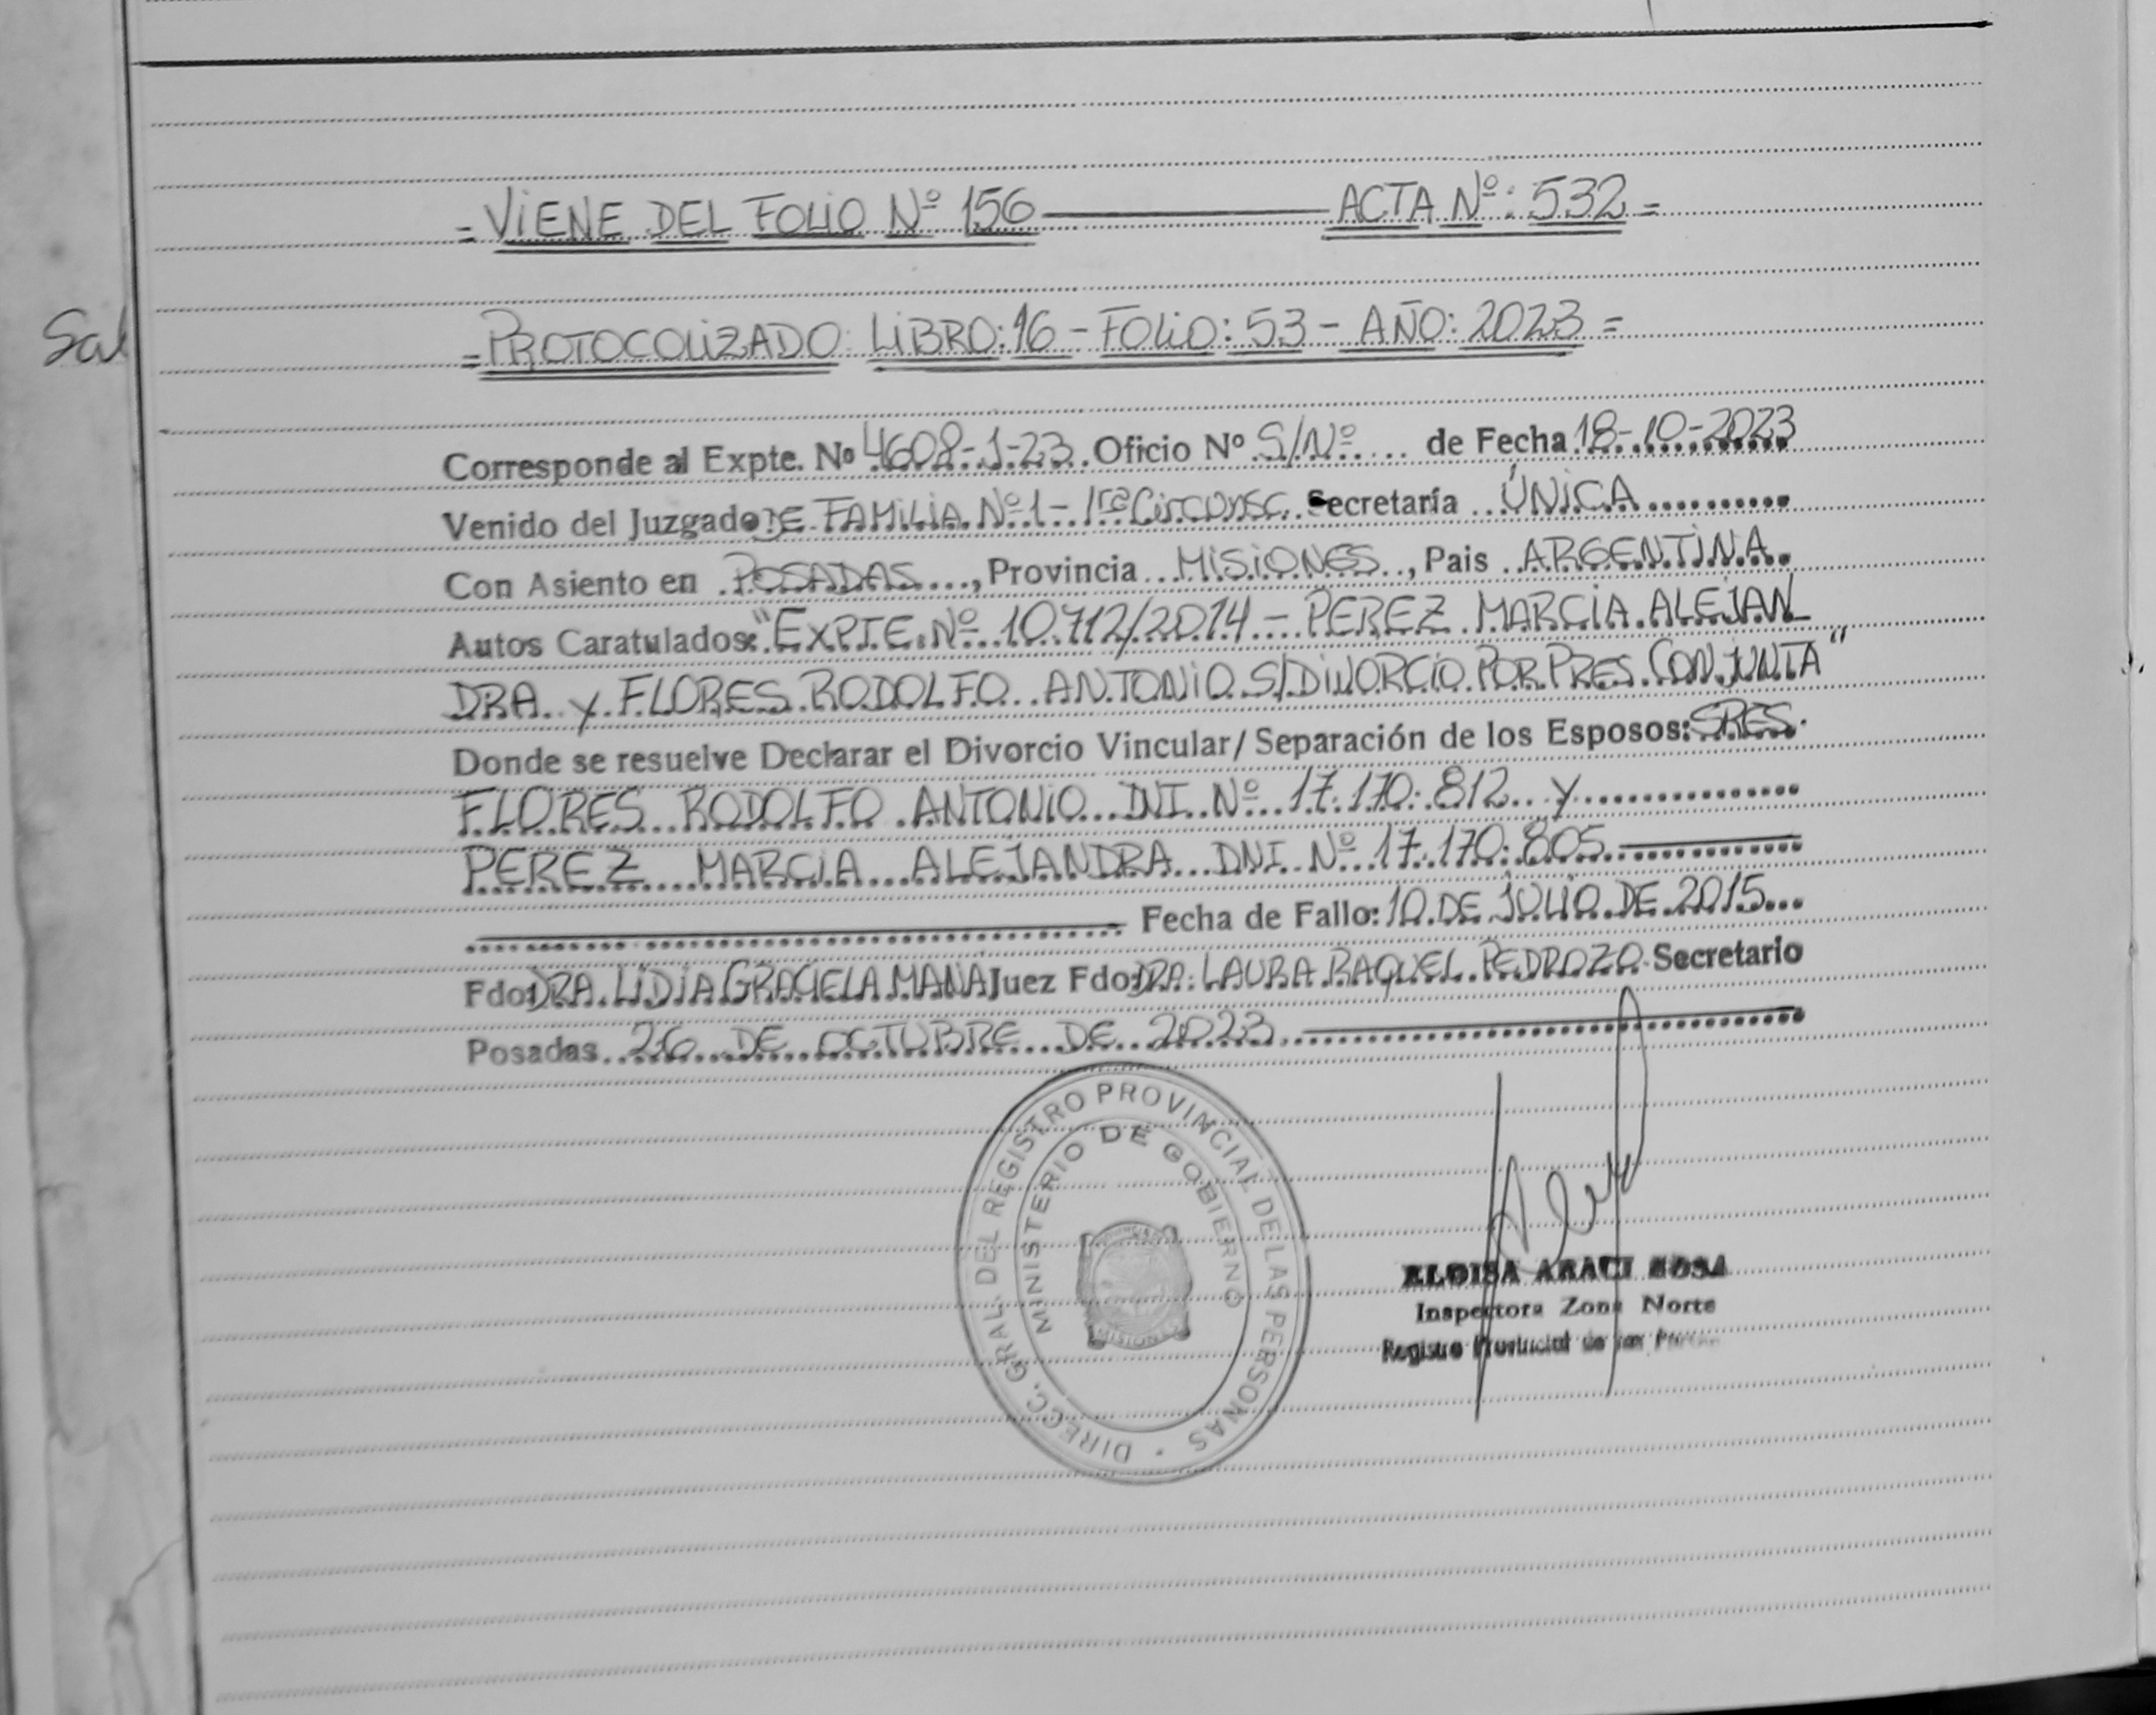 = VIENE DEL FOLIO Nº 156 ——— ACTA Nº: 532 =
Sal
= PROTOCOLIZADO: LIBRO: 16 - FOLIO: 53 - AÑO: 2023 =
Corresponde al Expte. Nº 4608-J-23 Oficio Nº S/Nº de Fecha 18-10-2023
Venido del Juzgado DE FAMILIA Nº 1 - 1ra Circunsc. Secretaría ÚNICA
Con Asiento en POSADAS, Provincia MISIONES, Pais ARGENTINA.
Autos Caratulados: "EXPTE. Nº 10.712/2014 - PEREZ MARCIA ALEJAN
DRA y FLORES RODOLFO ANTONIO S/DIVORCIO POR PRES. CONJUNTA"
Donde se resuelve Declarar el Divorcio Vincular/ Separación de los Esposos: SRES.
FLORES RODOLFO ANTONIO DNI Nº 17.170.812 y
PEREZ MARCIA ALEJANDRA DNI Nº 17.170.805
Fecha de Fallo: 10 DE JULIO DE 2015
Fdo: DRA. LIDIA GRACIELA MANA Juez Fdo: DRA. LAURA RAQUEL PEDROZO Secretario
Posadas 26 DE OCTUBRE DE 2023
DIRECC. GRAL. DEL REGISTRO PROVINCIAL DE LAS PERSONAS
MINISTERIO DE GOBIERNO
MISIONES
ELOISA ARACI SOSA
Inspectora Zona Norte
Registro Provincial de las